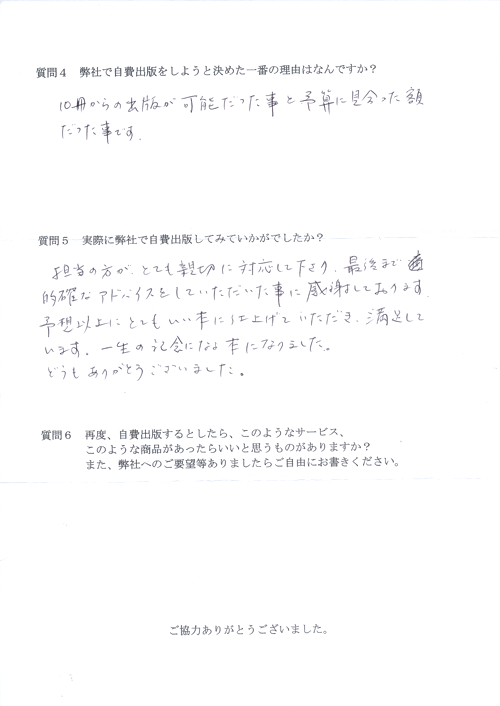 質問４　弊社で自費出版をしようと決めた一番の理由はなんですか？
10冊からの出版が可能だった事と予算に見合った額
だった事です.
質問５　実際に弊社で自費出版してみていかがでしたか？
担当の方が、とても親切に対応して下さり、最後まで
的確なアドバイスをしていただいた事に感謝しております.
予想以上にとてもいい本に仕上げていただき、満足して
います。一生の記念になる本になりました。
どうもありがとうございました。
質問６　再度、自費出版するとしたら、このようなサービス、
このような商品があったらいいと思うものがありますか？
また、弊社へのご要望等ありましたらご自由にお書きください。
ご協力ありがとうございました。